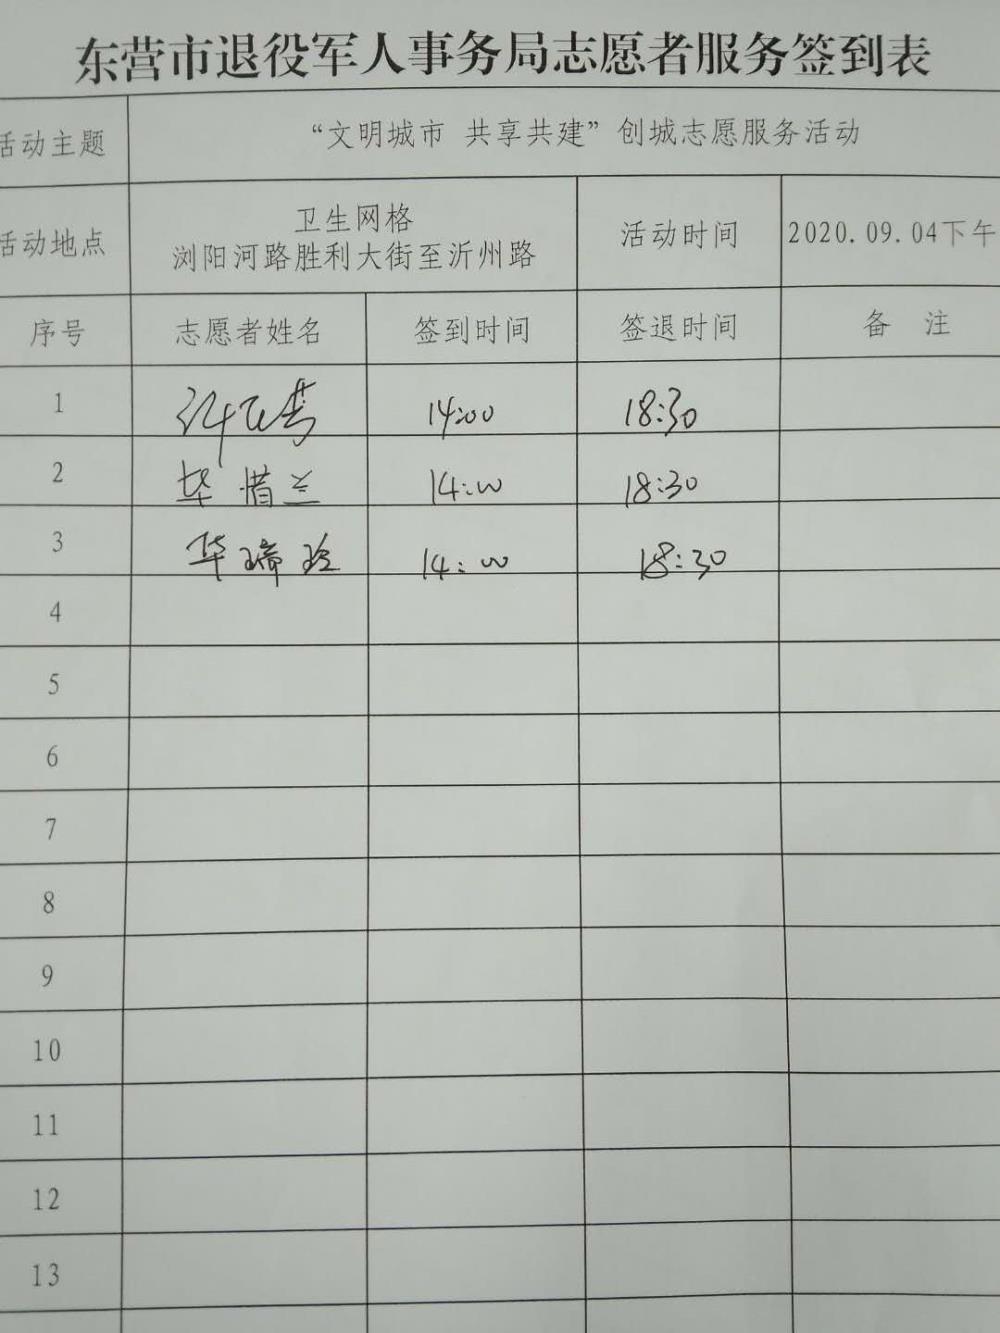 东营市退役军人事务局志愿者服务签到表
活动主题 “文明城市 共享共建”创城志愿服务活动
活动地点 卫生网格 浏阳河路胜利大街至沂州路 活动时间 2020.09.04下午
序号 志愿者姓名 签到时间 签退时间 备 注
1 14:00 18:30
2 华惜兰 14:00 18:30
3 华瑞玲 14:00 18:30
4
5
6
7
8
9
10
11
12
13